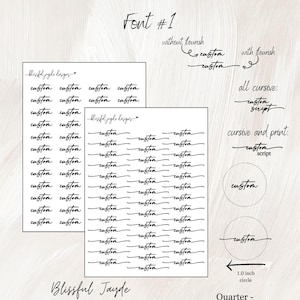 Font #1
without flourish
custom
with flourish
custom
blissful jayde designs
custom custom custom custom
custom custom custom custom
custom custom
custom custom
custom custom
custom custom
custom custom
custom custom
custom custom
custom custom
custom custom
custom custom
blissful jayde designs
custom custom custom
custom custom custom
custom custom custom
custom custom custom
custom custom custom
custom custom custom
custom custom custom
custom custom custom
custom custom custom
custom custom custom
custom custom custom
custom custom custom
custom custom custom
all cursive:
custom
script
cursive and print:
custom
script
custom
custom
1.0 inch
circle
Quarter -
Blissful Jayde